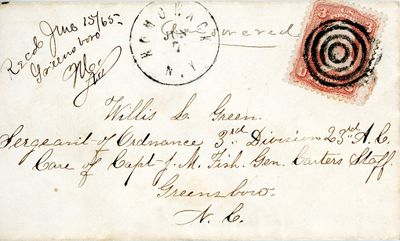 Recd June 15/65.
Greensboro
N.C.
HONOMACK
JUN
N.Y.
overed
3
Willis L. Green.
Sergeant of Ordnance 3rd Division 23rd A.C.
Care of Capt J. M. Fish. Gen. Carters Staff.
Greensboro.
N. C.